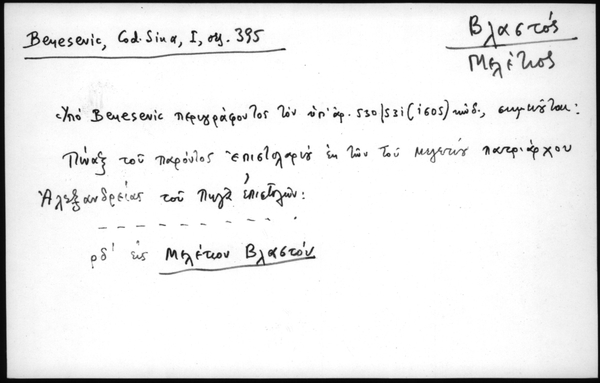 Benesevic, Cod. Sina, I, σελ. 395
Βλαστός
Μελέτιος
Ὑπὸ Benesevic περιγράφοντος τὸν ὑπ' ἀρ. 530/531 (1605) κώδ., σημειοῦται:
Πίναξ τοῦ παρόντος ἐπιστολαρίου ἐκ τῶν τοῦ Μελετίου πατριάρχου
Ἀλεξανδρείας τοῦ Πηγᾶ ἐπιστολῶν:
ρδ' εἰς Μελέτιον Βλαστόν